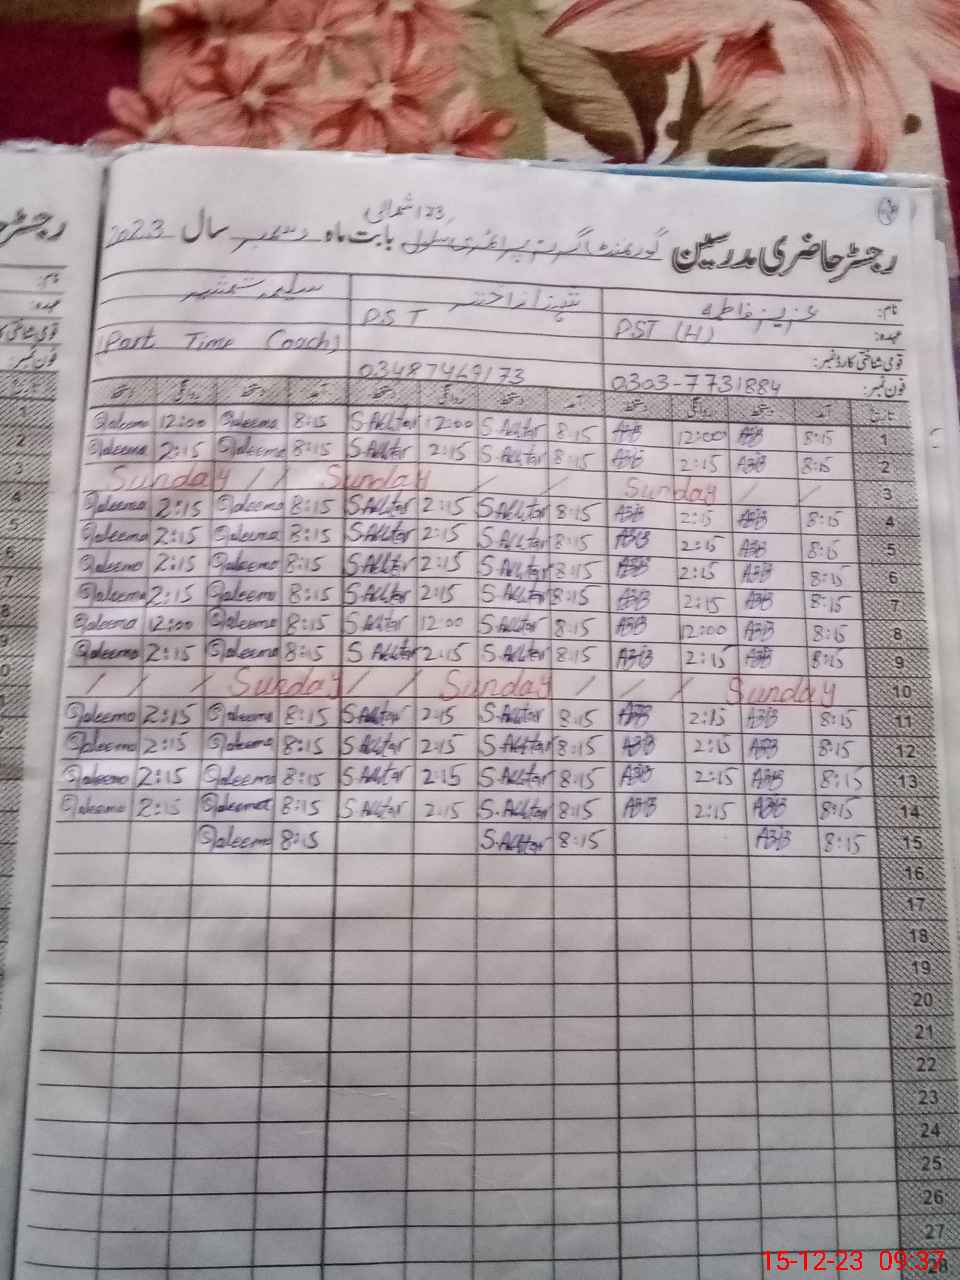 رجسٹر حاضری مدرسین گورنمنٹ گرلز پرائمری سکول 123 شمالی بابت ماہ دسمبر سال 2023
نام: عزیز فاطمہ شہناز اختر سلیمہ شمشیر
عہدہ: PST (H) PST (Part Time Coach)
قومی شناختی کارڈ نمبر:
فون نمبر: 0303-7731884 03487469173
تاریخ آمد دستخط روانگی دستخط آمد دستخط روانگی دستخط آمد دستخط روانگی دستخط
Saleema 12:00 Saleema 8:15 S.Akhtar 12:00 S.Akhtar 8:15 12:00 8:15 1
Saleema 2:15 Saleema 8:15 S.Akhtar 2:15 S.Akhtar 8:15 2:15 8:15 2
Sunday / / Sunday / / Sunday / / 3
Saleema 2:15 Saleema 8:15 S.Akhtar 2:15 S.Akhtar 8:15 2:15 8:15 4
Saleema 2:15 Saleema 8:15 S.Akhtar 2:15 S.Akhtar 8:15 2:15 8:15 5
Saleema 2:15 Saleema 8:15 S.Akhtar 2:15 S.Akhtar 8:15 2:15 8:15 6
Saleema 2:15 Saleema 8:15 S.Akhtar 2:15 S.Akhtar 8:15 2:15 8:15 7
Saleema 12:00 Saleema 8:15 S.Akhtar 12:00 S.Akhtar 8:15 12:00 8:15 8
Saleema 2:15 Saleema 8:15 S.Akhtar 2:15 S.Akhtar 8:15 2:15 8:15 9
/ / / Sunday / / Sunday / / / Sunday 10
Saleema 2:15 Saleema 8:15 S.Akhtar 2:15 S.Akhtar 8:15 2:15 8:15 11
Saleema 2:15 Saleema 8:15 S.Akhtar 2:15 S.Akhtar 8:15 2:15 8:15 12
Saleema 2:15 Saleema 8:15 S.Akhtar 2:15 S.Akhtar 8:15 2:15 8:15 13
Saleema 2:15 Saleema 8:15 S.Akhtar 2:15 S.Akhtar 8:15 2:15 8:15 14
Saleema 8:15 S.Akhtar 8:15 8:15 15
16
17
18
19
20
21
22
23
24
25
26
27
28
15-12-23 09:37